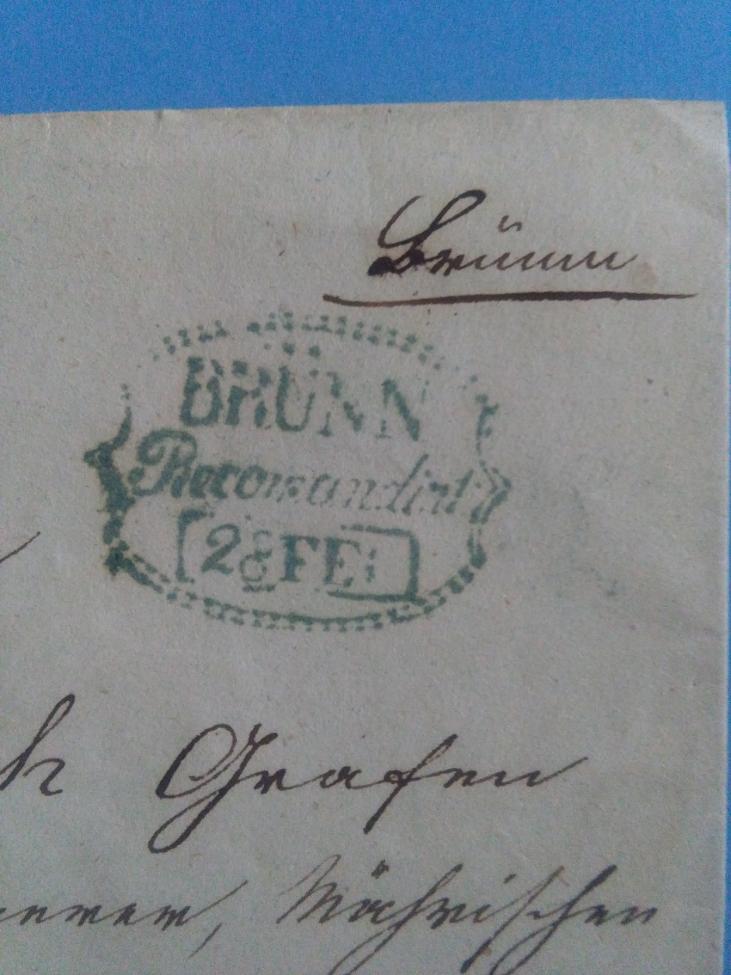 Brünn
BRÜNN
Recomandirt
28 FE
Grafen
Mährischen